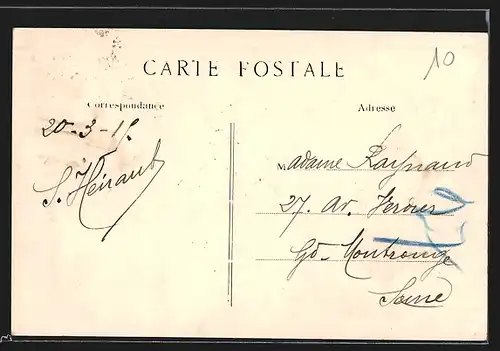 10
CARTE POSTALE
Correspondance
Adresse
20-3-15
S. Héraud
Madame Raynaud
27. Av. Verdier
Gd-Montrouge
Seine